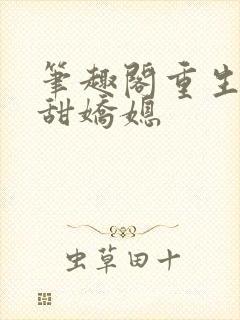 筆趣閣重生
甜嬌媳
虫草田十